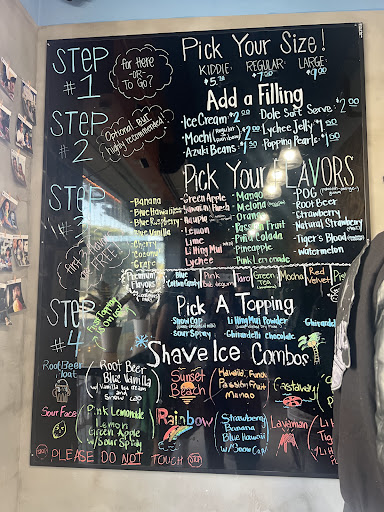 STEP #1
for Here -OR- To Go?
Pick Your Size!
KIDDIE: REGULAR: LARGE:
$5.50 $7.00 $9.00
STEP #2
Optional, But highly recommended!
Add a Filling
Ice Cream $2.00
Dole Soft Serve $2.00
Mochi $2.00
Lychee Jelly $1.50
Azuki Beans $1.50
Popping Pearls $1.50
STEP
Pick Your FLAVORS
-Banana
-Blue Hawaii
-Blue Raspberry
-Blue Vanilla
-Cherry
-Coconut
-Grape
-Green Apple
-Hawaiian Punch
-Haupia
-Lemon
-Lime
-Li Hing Mui
-Lychee
-Mango
-Melona
-Orange
-Passion Fruit
-Piña Colada
-Pineapple
-Pink Lemonade
-POG
-Root Beer
-Strawberry
-Natural Strawberry
-Tiger's Blood
-Watermelon
Premium Flavors
Blue Cotton Candy
Pink
Taro
Green TEA
Mocha
Red Velvet
STEP #4
Pick A Topping
-Snow Cap
-Sour Spray
-Li Hing Mui Powder
-Ghirardelli chocolate
-Ghirardelli
Shave Ice Combos
Root Beer Float
Root Beer
Blue Vanilla
w/ Vanilla ice cream and Snow Cap
Sunset Beach
Hawaii. Punch
Passion Fruit
Mango
Castaway
Sour Face
Pink Lemonade
Lemon
Green Apple
w/ Sour Spray
Rainbow
Strawberry
Banana
Blue Hawaii
w/ Snow Cap
Lavaman
PLEASE DO NOT TOUCH